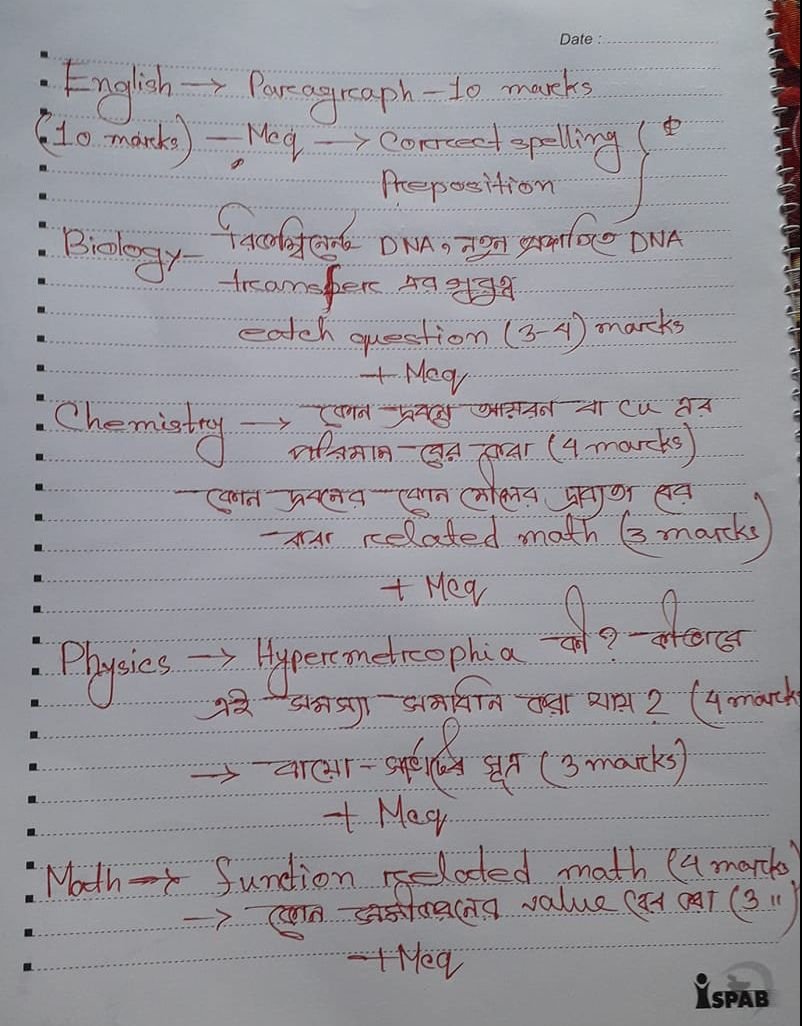 Date :
English → Paragraph - 10 marks
(10 marks) - Mcq → Correct spelling
Preposition
Biology - রিকম্বিনেন্ট DNA, নতুন প্রজাতিতে DNA
transfer এর গুরুত্ব
eatch question (3-4) marks
+ Mcq
Chemistry → কোন দ্রবনে আয়রন বা Cu এর
পরিমান বের করা (4 marks)
কোন দ্রবনের কোন মৌলের দ্রব্যতা বের
করা related math (3 marks)
+ Mcq
Physics → Hypermetrophia কী ? কীভাবে
এই সমস্যা সমাধান করা যায় ? (4 marks
→ বায়ো-সাভার্টের সূত্র (3 marks)
+ Mcq
Math → function related math (4 marks)
→ কোন সমীকরনের value বের করা (3 ")
+ Mcq
iSPAB